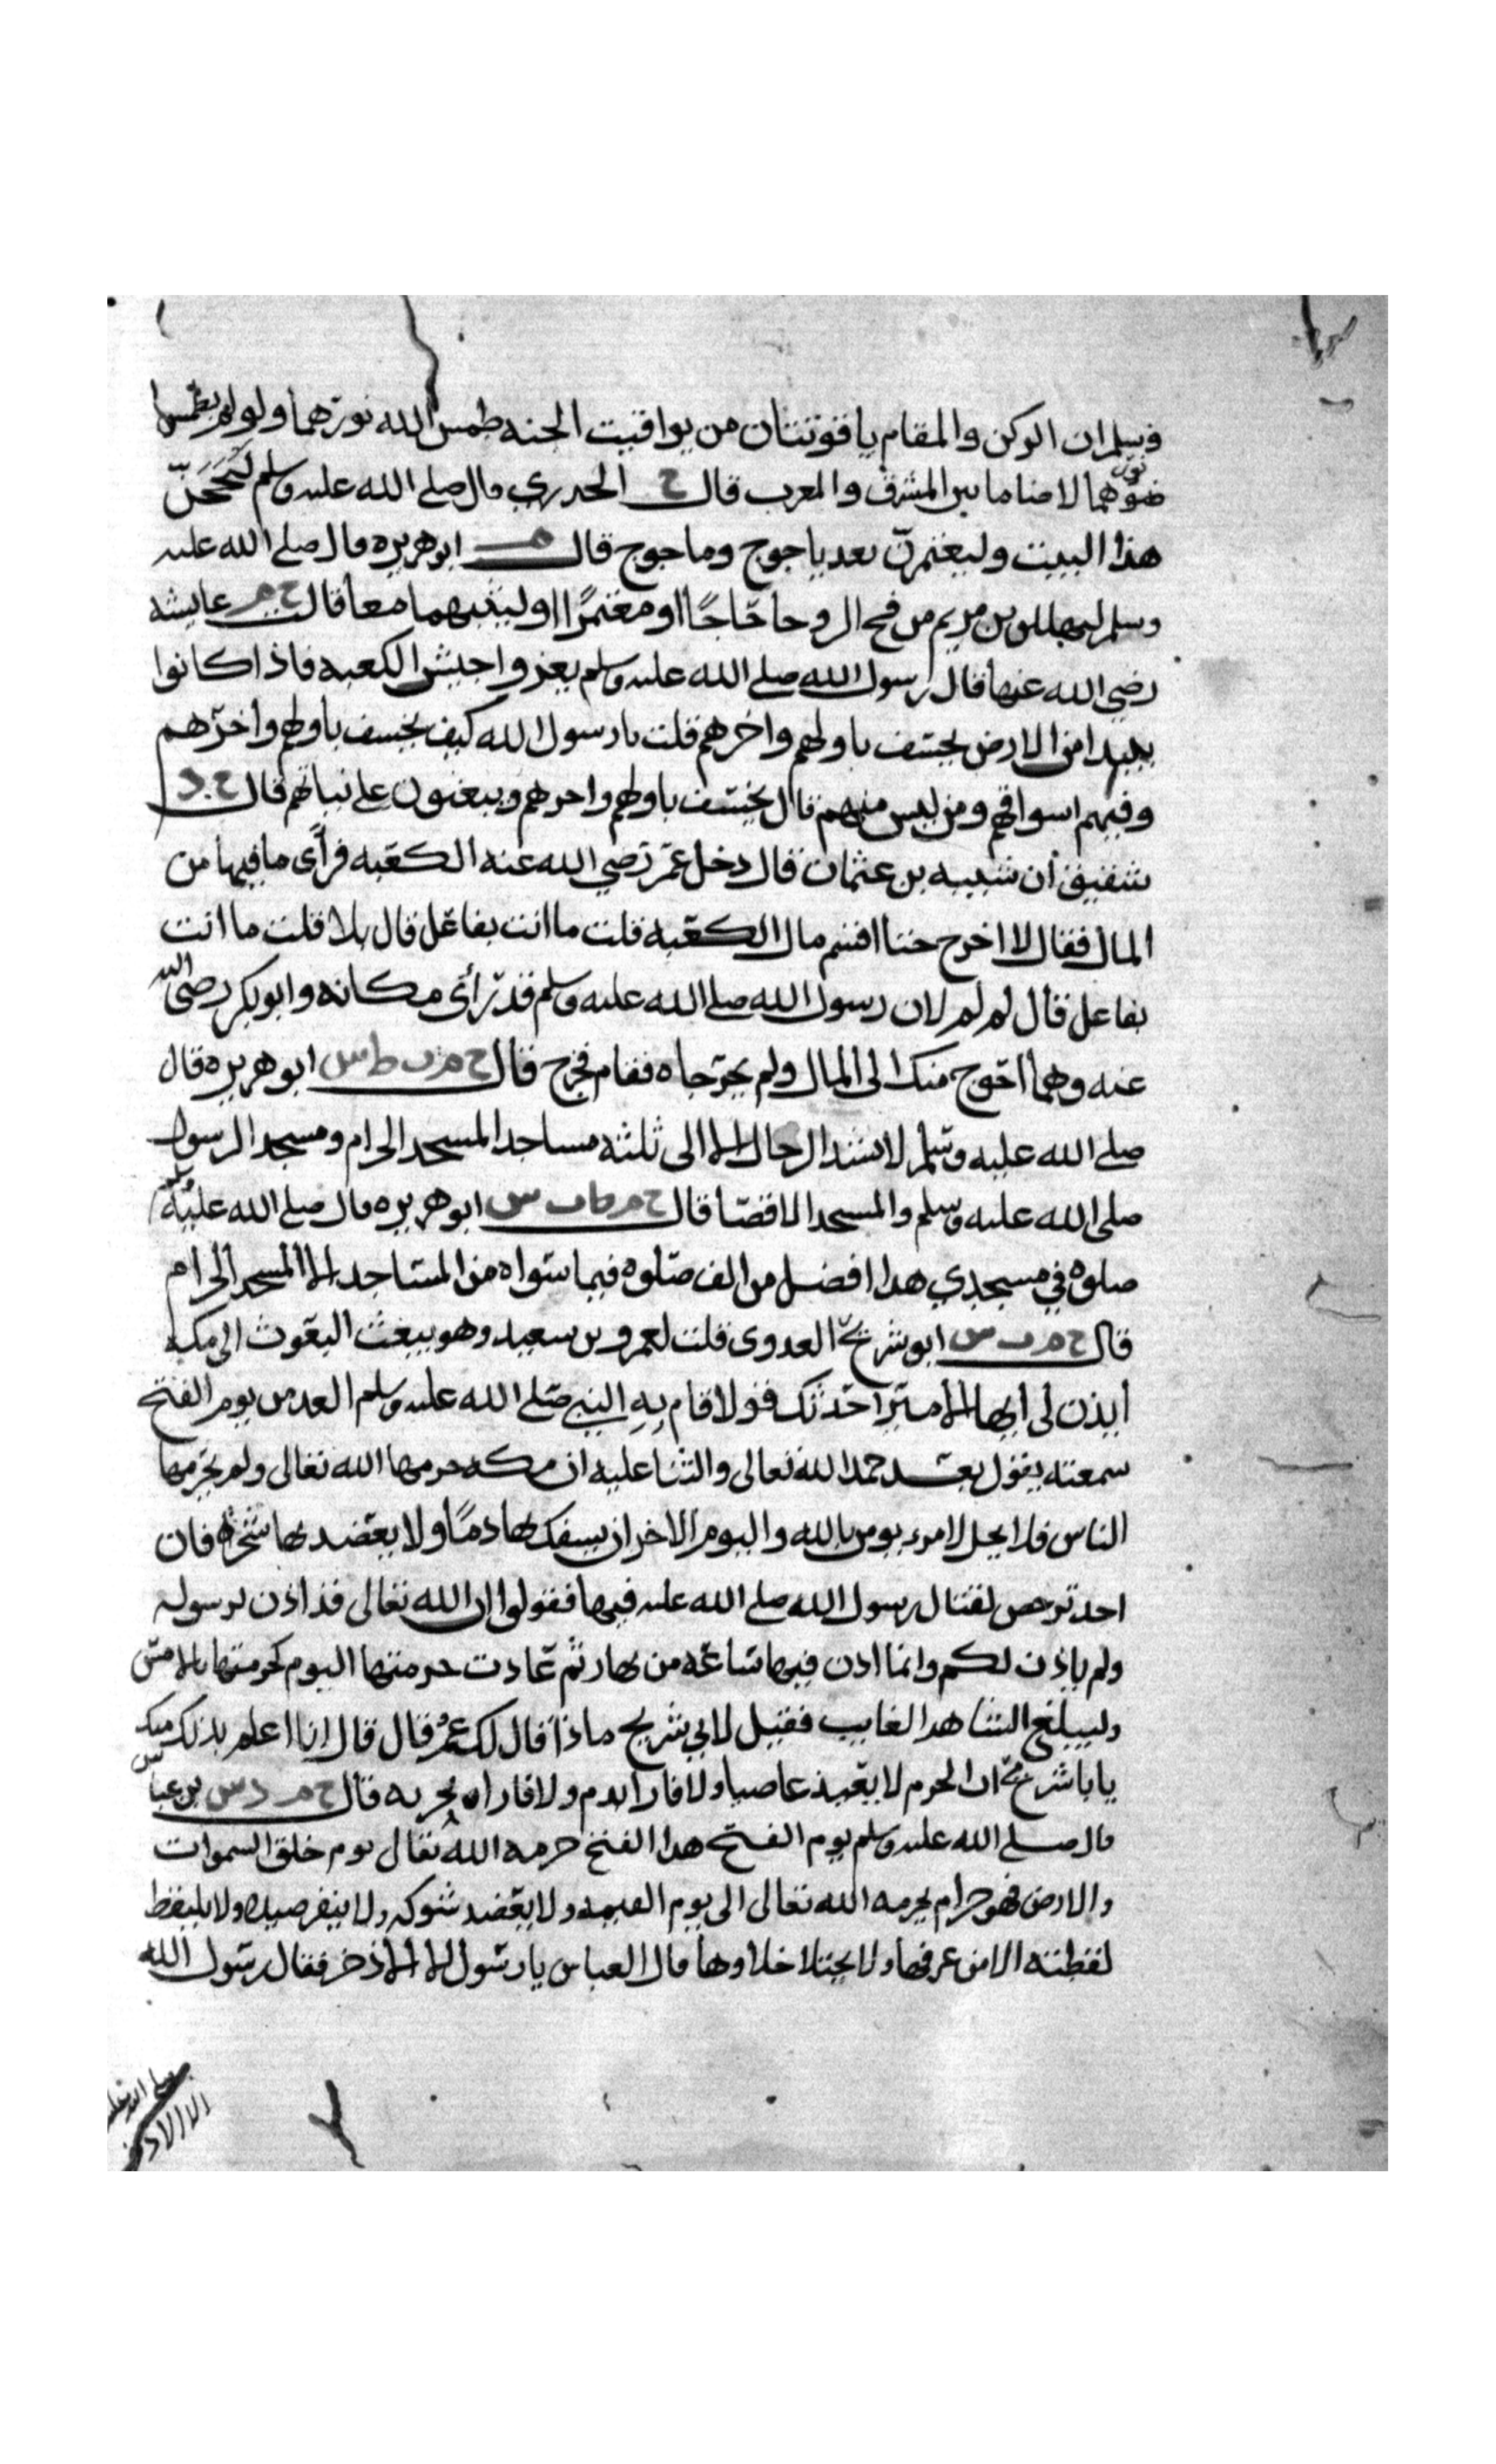 وسلم ان الركن والمقام ياقوتتان من يواقيت الجنه طمس الله نورهما ولو لم يطمس
نورهما لاضا ما بين المشرق والمغرب قال خ الخدري قال صلى الله عليه وسلم ليحجن
هذا البيت وليعتمرن بعد ياجوج وماجوج قال م ابو هريره قال صلى الله عليه
وسلم ليهللن بن مريم من فج الروحا حاجا او معتمرا او ليثنيهما معا قال خ م عايشه
رضي الله عنها قال رسول الله صلى الله عليه وسلم يغزوا جيش الكعبه فاذا كانوا
ببيدا من الارض يخسف باولهم واخرهم قلت يا رسول الله كيف يخسف باولهم واخرهم
وفيهم اسواقهم ومن ليس منهم قال يخسف باولهم واخرهم ويبعثون على نياتهم قال خ د
شقيق ان شيبه بن عثمان قال دخل عمر رضي الله عنه الكعبه فرأى ما فيها من
المال فقال لا اخرج حتا اقسم مال الكعبه قلت ما انت بفاعل قال بلا قلت ما انت
بفاعل قال لم لم لان رسول الله صلى الله عليه وسلم قد رأى مكانه وابو بكر رضى الله
عنه وهما احوج منك الى المال ولم يخرجاه فقام فخرج قال خ م ت ط س ابو هريره قال
صلى الله عليه وسلم لا تشد الرحال الا الى ثلثة مساجد المسجد الحرام ومسجد الرسول
صلى الله عليه وسلم والمسجد الاقصا قال خ م ط ت س ابو هريره قال صلى الله عليه وسلم
صلوة في مسجدي هذا افضل من الف صلوه فيما سواه من المساجد الا المسجد الحرام
قال خ م ت س ابو شريح العدوى قلت لعمرو بن سعيد وهو يبعث البعوث الى مكه
ايذن لى ايها الامير احدثك قولا قام به النبي صلى الله عليه وسلم الغد من يوم الفتح
سمعته يقول بعد حمد الله تعالى والثنا عليه ان مكه حرمها الله تعالى ولم يحرمها
الناس فلا يحل لامرء يومن بالله واليوم الاخر ان يسفك بها دما ولا يعضد بها شجره فان
احد ترخص لقتال رسول الله صلى الله عليه فيها فقولوا ان الله تعالى قد اذن لرسوله
ولم ياذن لكم وانما اذن فيها ساعه من نهار ثم عادت حرمتها اليوم كحرمتها بالامس
وليبلغ الشاهد الغايب فقيل لابي شريح ماذا قال لك عمر قال قال انا اعلم بذلك منك
يا با شريح ان الحرم لا يعيذ عاصيا ولا فارا بدم ولا فارا بخربه قال خ م د س بن عباس
قال صلى الله عليه وسلم يوم الفتح هذا الفتح حرمه الله تعالى يوم خلق السموات
والارض فهو حرام بحرمه الله تعالى الى يوم القيمه ولا يعضد شوكه ولا ينفر صيده ولا يلتقط
لقطته الا من عرفها ولا يختلا خلاوها قال العباس يا رسول الله الا الاذخر فقال رسول الله
الا الاذخر